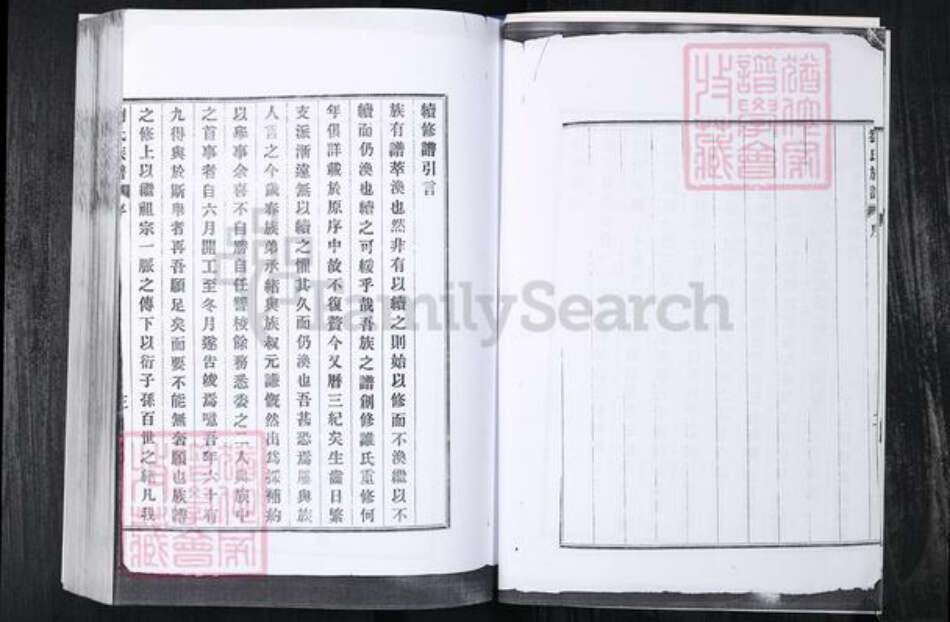 續修譜引言
族有譜萃渙也然非有以續之則始以修而不渙繼以不
續而仍渙也續之可緩乎哉吾族之譜創修誰氏重修何
年俱詳載於原序中故不復贅今又曆三紀矣生齒日繁
支派漸遠無以續之懼其久而仍渙也吾甚恐焉屢與族
人言之今歲春族弟承緒與族叔元謙慨然出為深補約
以舉事余喜不自勝自任讐校餘務悉委之二人與族中
之首事者自六月開工至冬月遂告竣焉噫吾年六十有
九得與於斯舉者再吾願足矣而要不能無奢願也族譜
之修上以繼祖宗一脈之傳下以衍子孫百世之緒凡我
氏族譜
FamilySearch
譜學會
收藏
氏族譜
譜學會
收藏